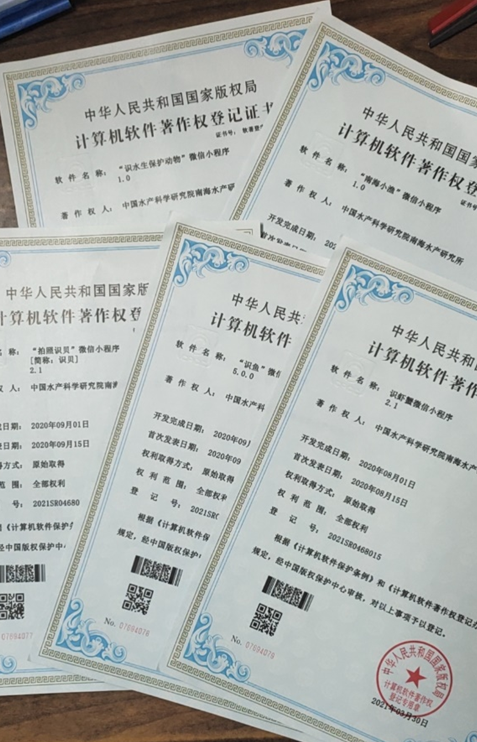 中华人民共和国国家版权局
计算机软件著作权登记证书
证书号： 软著登
软 件 名 称： “识水生保护动物”微信小程序
1.0
著 作 权 人： 中国水产科学研究院南海水产研
中华人民共和国国家
计算机软件著作权登
证书号
软 件 名 称： “南海小渔”微信小程序
1.0
著 作 权 人： 中国水产科学研究院南海水产研究所
开发完成日期： 202
首次发表日
中华人民共和国国家版
计算机软件著作权登
名 称： “拍照识贝”微信小程序
[简称：识贝]
2.1
权 人： 中国水产科学研究院南海
成日期： 2020年09月01日
表日期： 2020年09月15日
得方式： 原始取得
范 围： 全部权利
号： 2021SR04680
根据《计算机软件保护条
规定，经中国版权保护中心
No. 07594077
中华人民共和
计算机软件
软 件 名 称： “识鱼”微信
5.0.0
著 作 权 人： 中国水产科
开发完成日期： 2020年09
首次发表日期： 2020年09
权利取得方式： 原始取得
权 利 范 围： 全部权利
登 记 号： 2021SR0
根据《计算机软件保
规定，经中国版权保护
No. 07594079
中华人民共和国
计算机软件著作
软 件 名 称： 识虾蟹微信小程序
2.1
著 作 权 人： 中国水产科学研究院南海水产
开发完成日期： 2020年08月01日
首次发表日期： 2020年08月15日
权利取得方式： 原始取得
权 利 范 围： 全部权利
登 记 号： 2021SR0468015
根据《计算机软件保护条例》和《计算机软件著作权登记办
规定，经中国版权保护中心审核，对以上事项予以登记。
No. 07594078
中华人民共和国国家版权局
计算机软件著作权
登记专用章
2021年03月30日